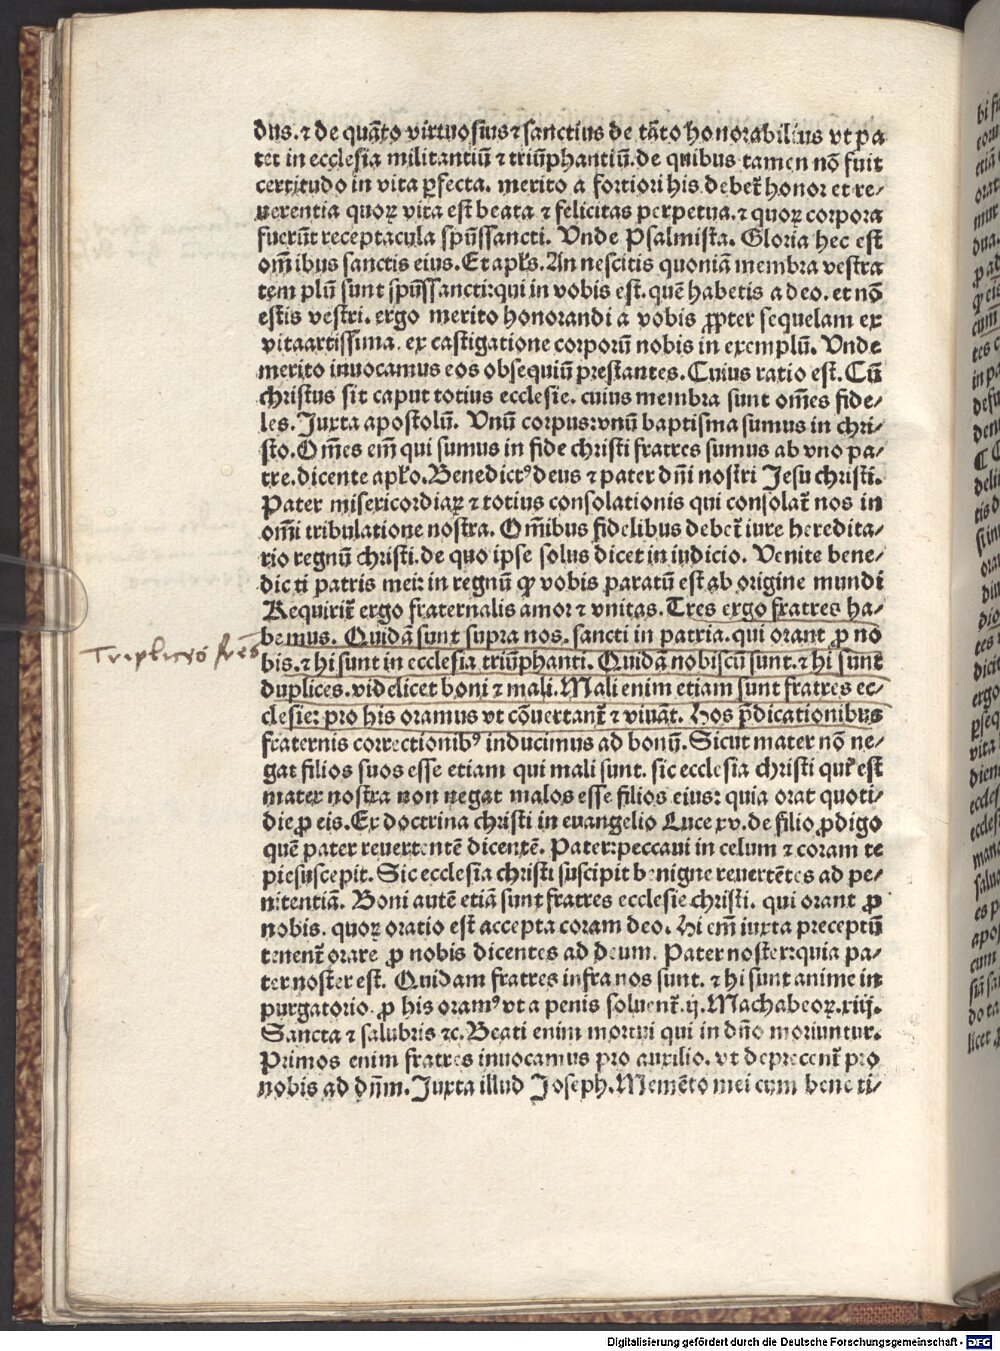 dus. ⁊ de quãto virtuosius ⁊ sanctius de tãto honorabilius vt pa
tet in ecclesia militantiũ ⁊ triũphantiũ. de quibus tamen nõ fuit
certitudo in vita ꝑfecta. merito a fortiori his debet̃ honor et re/
uerentia quoꝝ vita est beata ⁊ felicitas perpetua. ⁊ quoꝝ corpora
fuerũt receptacula spũssancti. Vnde Psalmista. Gloria hec est
om̃ibus sanctis eius. Et apl̃s. An nescitis quoniã membra vestra
tem plũ sunt spũssancti: qui in vobis est. quẽ habetis a deo. et nõ
estis vestri. ergo merito honorandi a vobis ꝓpter sequelam ex
vita artissima. ex castigatione corporũ nobis in exemplũ. Vnde
merito inuocamus eos obsequiũ prestantes. Cuius ratio est. Cũ
christus sit caput totius ecclesie. cuius membra sunt om̃es fide/
les. Juxta apostolũ. Vnũ corpus: vnũ baptisma sumus in chri/
sto. Om̃es em̃ qui sumus in fide christi fratres sumus ab vno pa/
tre. dicente apl̃o. Benedictꝰ deus ⁊ pater dñi nostri Jesu christi.
Pater misericordiaꝝ ⁊ totius consolationis qui consolat̃ nos in
om̃i tribulatione nostra. Om̃ibus fidelibus debet̃ iure heredita/
rio regnũ christi. de quo ipse solus dicet in iudicio. Venite bene/
dic ti patris mei: in regnũ qđ vobis paratũ est ab origine mundi
Requirit̃ ergo fraternalis amor ⁊ vnitas. Tres ergo fratres ha/
bemus. Quidã sunt supra nos. sancti in patria. qui orant ꝓ no
bis. ⁊ hi sunt in ecclesia triũphanti. Quidã nobiscũ sunt. ⁊ hi sunt
duplices. videlicet boni ⁊ mali. Mali enim etiam sunt fratres ec/
clesie: pro his oramus vt cõuertant̃ ⁊ viuãt. Hos p̃dicationibus
fraternis correctionibꝰ inducimus ad bonũ. Sicut mater nõ ne/
gat filios suos esse etiam qui mali sunt. sic ecclesia christi que est
mater nostra non negat malos esse filios eius: quia orat quoti/
die ꝓ eis. Ex doctrina christi in euangelio Luce xv. de filio ꝓdigo
quẽ pater reuertentẽ dicentẽ. Pater: peccaui in celum ⁊ coram te
pie suscepit. Sic ecclesia christi suscipit benigne reuertẽtes ad pe/
nitentiã. Boni autẽ etiã sunt fratres ecclesie christi. qui orant ꝓ
nobis. quoꝝ oratio est accepta coram deo. Hi em̃ iuxta preceptũ
tenent̃ orare ꝓ nobis dicentes ad deum. Pater noster: quia pa/
ter noster est. Quidam fratres infra nos sunt. ⁊ hi sunt anime in
purgatorio. ꝓ his oramꝰ vt a penis soluent̃. ij. Machabeoꝝ. xiij.
Sancta ⁊ salubris ⁊c. Beati enim mortui qui in dño moriuntur.
Primos enim fratres inuocamus pro auxilio. vt deprecent̃ pro
nobis ad dñm. Juxta illud Joseph. Memẽto mei cum bene ti/
Digitalisierung gefördert durch die Deutsche Forschungsgemeinschaft - DFG